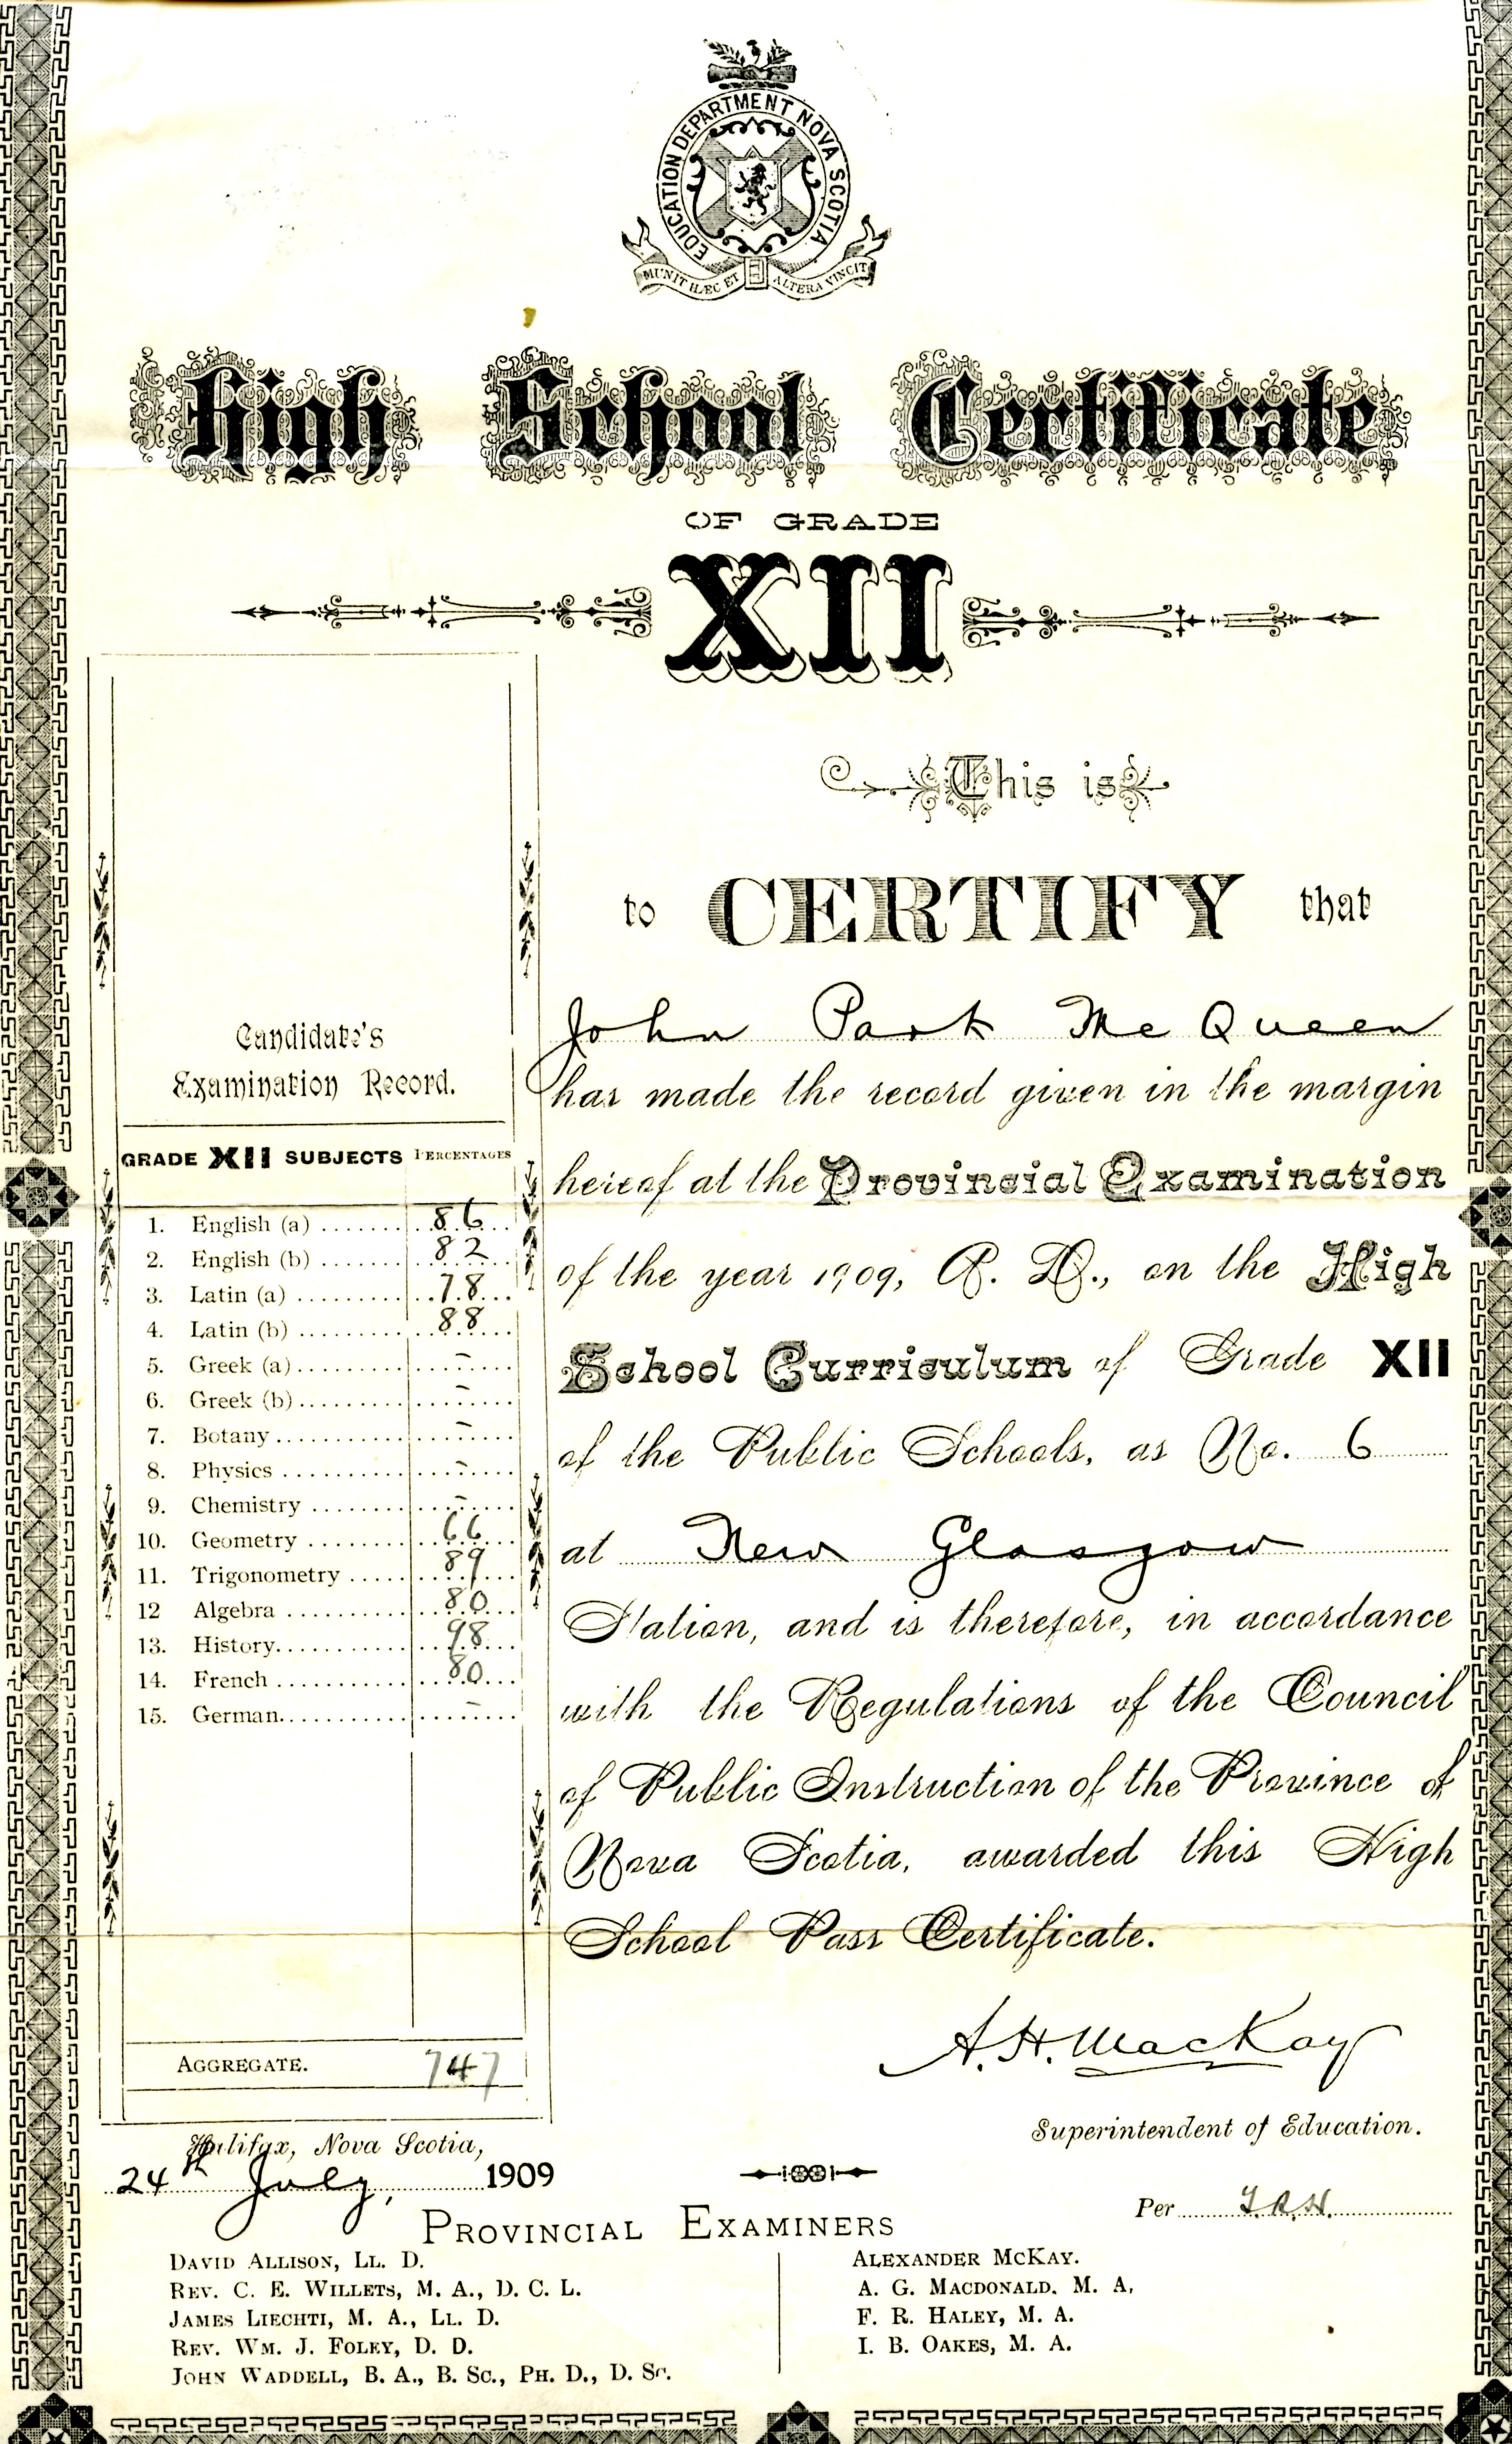 EDUCATION DEPARTMENT NOVA SCOTIA
MUNIT HÆC ET ALTERA VINCIT
High School Certificate
OF GRADE
XII
This is
to CERTIFY that
John Park McQueen
has made the record given in the margin
hereof at the Provincial Examination
of the year 1909, A. D., on the High
School Curriculum of Grade XII
of the Public Schools, as No. 6
at New Glasgow
Station, and is therefore, in accordance
with the Regulations of the Council
of Public Instruction of the Province of
Nova Scotia, awarded this High
School Pass Certificate.
A. H. MacKay
Superintendent of Education.
Per
Candidate's
Examination Record.
GRADE XII SUBJECTS PERCENTAGES
1. English (a) 86
2. English (b) 82
3. Latin (a) 78
4. Latin (b) 88
5. Greek (a) -
6. Greek (b) -
7. Botany -
8. Physics -
9. Chemistry -
10. Geometry 66
11. Trigonometry 89
12 Algebra 80
13. History 98
14. French 80
15. German -
AGGREGATE. 747
Halifax, Nova Scotia,
24th July, 1909
PROVINCIAL EXAMINERS
DAVID ALLISON, LL. D.
REV. C. E. WILLETS, M. A., D. C. L.
JAMES LIECHTI, M. A., LL. D.
REV. WM. J. FOLEY, D. D.
JOHN WADDELL, B. A., B. SC., PH. D., D. SC.
ALEXANDER MCKAY.
A. G. MACDONALD. M. A.
F. R. HALEY, M. A.
I. B. OAKES, M. A.